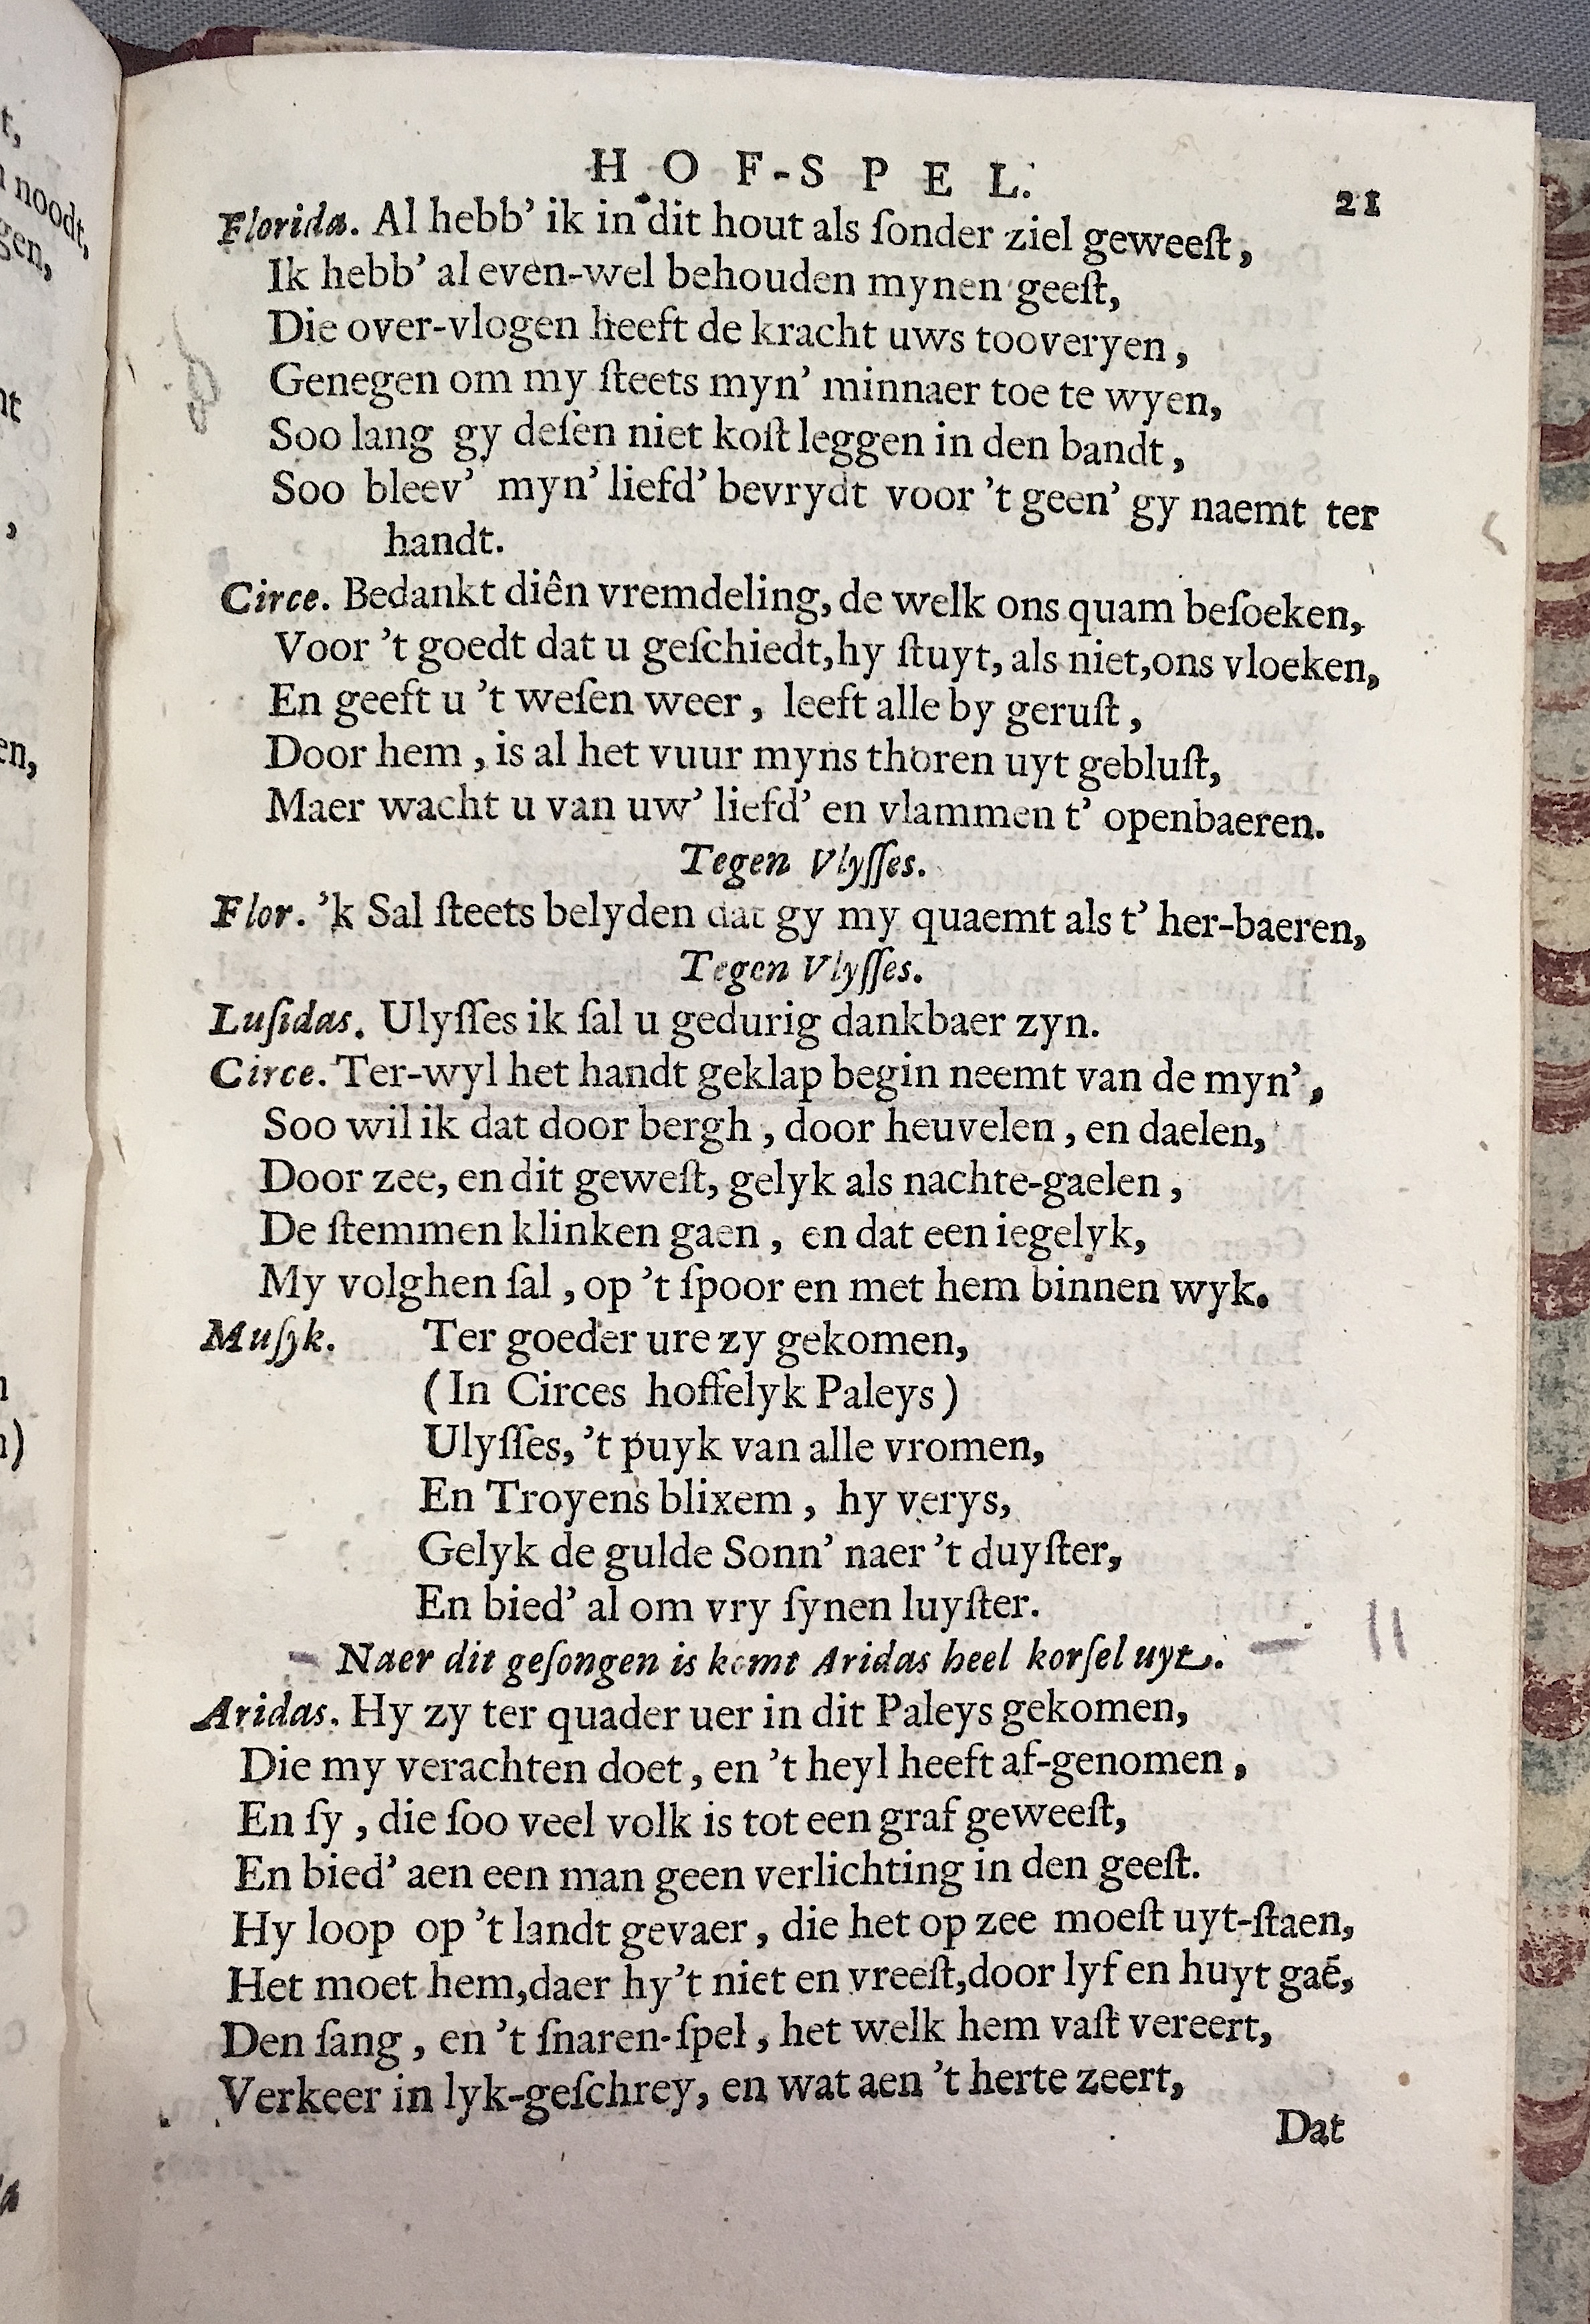 HOF-SPEL.
21
Florida. Al hebb' ik in dit hout als ſonder ziel geweeſt,
Ik hebb' al even-wel behouden mynen geeſt,
Die over-vlogen heeft de kracht uws tooveryen,
Genegen om my ſteets myn' minnaer toe te wyen,
Soo lang gy deſen niet koſt leggen in den bandt,
Soo bleev' myn' liefd' bevrydt voor 't geen' gy naemt ter
handt.
Circe. Bedankt diên vremdeling, de welk ons quam beſoeken,
Voor 't goedt dat u geſchiedt, hy ſtuyt, als niet, ons vloeken,
En geeft u 't weſen weer, leeft alle by geruſt,
Door hem, is al het vuur myns thoren uyt gebluſt,
Maer wacht u van uw' liefd' en vlammen t' openbaeren.
Tegen Vlyſſes.
Flor. 'k Sal ſteets belyden dat gy my quaemt als t' her-baeren,
Tegen Vlyſſes.
Luſidas. Ulyſſes ik ſal u gedurig dankbaer zyn.
Circe. Ter-wyl het handt geklap begin neemt van de myn',
Soo wil ik dat door bergh, door heuvelen, en daelen,
Door zee, en dit geweſt, gelyk als nachte-gaelen,
De ſtemmen klinken gaen, en dat een iegelyk,
My volghen ſal, op 't ſpoor en met hem binnen wyk.
Muſyk. Ter goeder ure zy gekomen,
(In Circes hoffelyk Paleys)
Ulyſſes, 't puyk van alle vromen,
En Troyens blixem, hy verys,
Gelyk de gulde Sonn' naer 't duyſter,
En bied' al om vry ſynen luyſter.
Naer dit geſongen is komt Aridas heel korſel uyt.
Aridas. Hy zy ter quader uer in dit Paleys gekomen,
Die my verachten doet, en 't heyl heeft af-genomen,
En ſy, die ſoo veel volk is tot een graf geweeſt,
En bied' aen een man geen verlichting in den geeſt.
Hy loop op 't landt gevaer, die het op zee moeſt uyt-ſtaen,
Het moet hem, daer hy't niet en vreeſt, door lyf en huyt gaē,
Den ſang, en 't ſnaren-ſpel, het welk hem vaſt vereert,
Verkeer in lyk-geſchrey, en wat aen 't herte zeert,
Dat